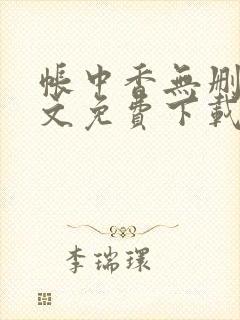 帳中香無刪
文免費下載
李瑞環